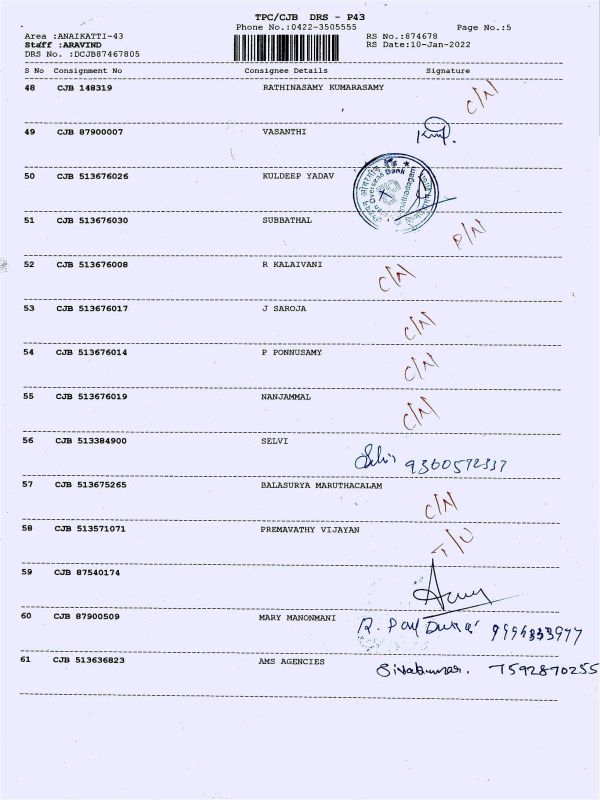 TPC/CJB DRS - P43
Phone No.:0422-3505555 Page No.:5
Area :ANAIKATTI-43 RS No.:874678
Staff :ARAVIND RS Date:10-Jan-2022
DRS No. :DCJB87467805
S No Consignment No Consignee Details Signature
48 CJB 148319 RATHINASAMY KUMARASAMY C/N
49 CJB 87900007 VASANTHI
50 CJB 513676026 KULDEEP YADAV
Overseas Bank
51 CJB 513676030 SUBBATHAL P/N
52 CJB 513676008 R KALAIVANI C/N
53 CJB 513676017 J SAROJA C/N
54 CJB 513676014 P PONNUSAMY C/N
55 CJB 513676019 NANJAMMAL C/N
56 CJB 513384900 SELVI 9360572337
57 CJB 513675265 BALASURYA MARUTHACALAM C/N
58 CJB 513571071 PREMAVATHY VIJAYAN T/U
59 CJB 87540174
60 CJB 87900509 MARY MANONMANI R. Paul Durai
61 CJB 513636823 AMS AGENCIES Sivakumar. 7592870255